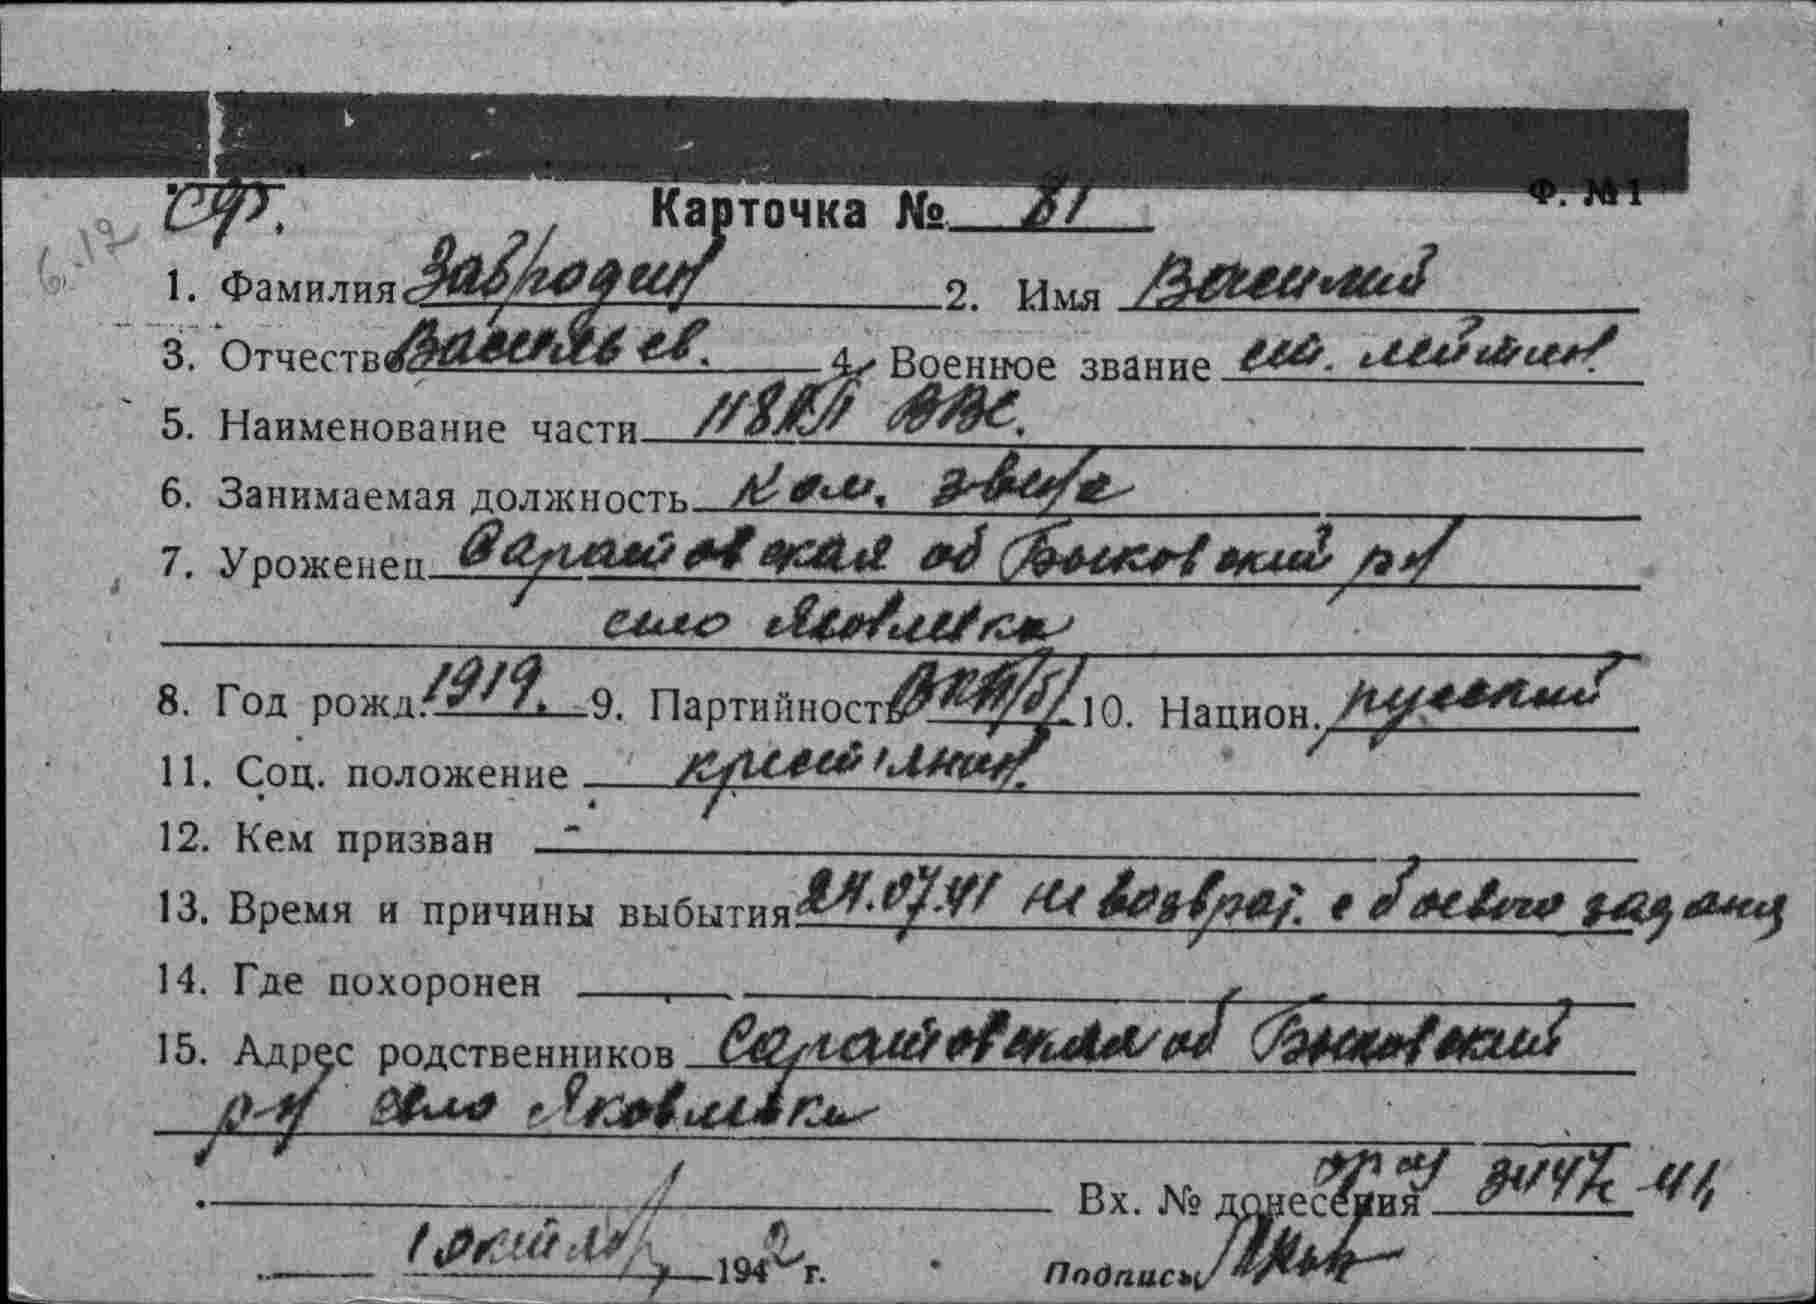 ср. Карточка № 81 Ф. №1
6.12
1. Фамилия Завродин 2. Имя Василий
3. Отчество Васильев. 4. Военное звание мл. лейтен.
5. Наименование части 118 АП ВВС.
6. Занимаемая должность Ком. звена
7. Уроженец Саратовская об Быковский р-н
село Яковлевка
8. Год рожд. 1919. 9. Партийность ВКП/б/ 10. Национ. русский
11. Соц. положение крестьянин
12. Кем призван -
13. Время и причины выбытия 24.07.41 не возврат. с боевого задания
14. Где похоронен
15. Адрес родственников Саратовская об Быковский
р-н село Яковлевка
Вх. № донесения 41
1 октября 1942 г. Подпись